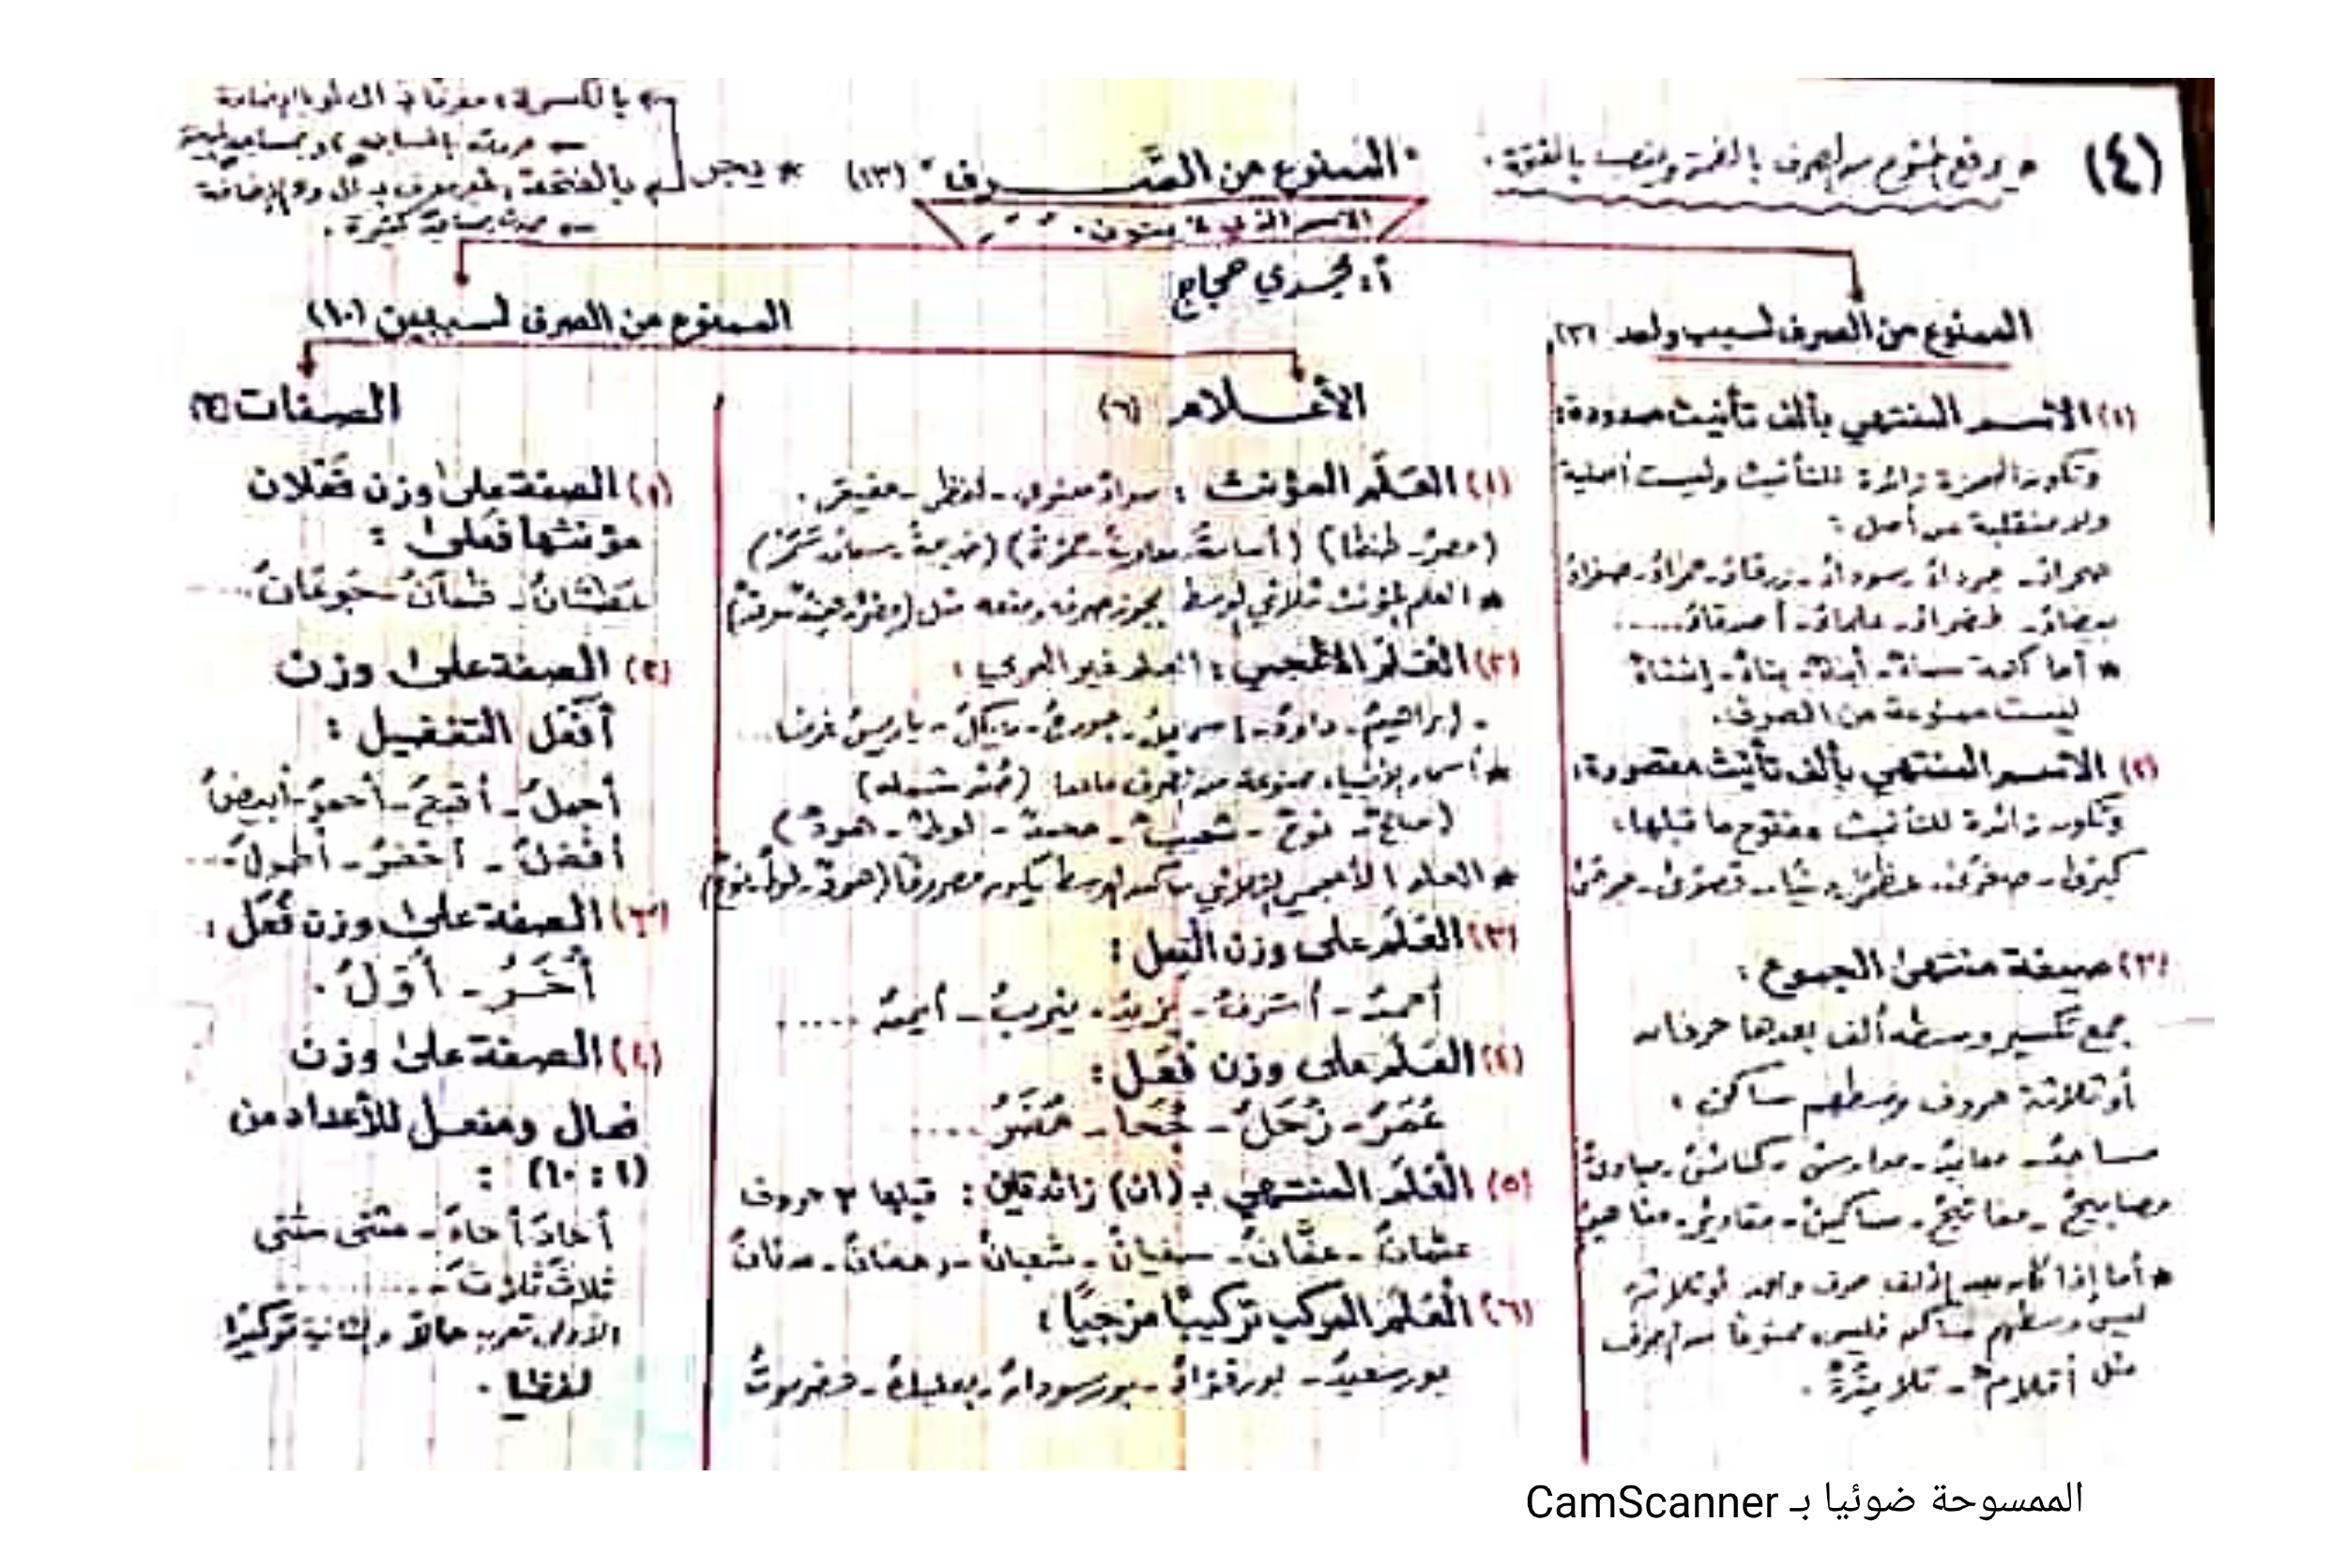 (٤)
* يرفع الممنوع من الصرف بالضمة وينصب بالفتحة.
"الممنوع من الصرف" (١٣)
الاسم الذي لا ينون.
* يجر
بالكسرة: معرفًا بـ ال أو بالإضافة
بالفتحة: غير معرف بـ ال و الإضافة
كثيرة.
أ: مجدي حجاج
الممنوع من الصرف لسبب واحد (٣)
(١) الاسم المنتهي بألف تأنيث ممدودة:
وتكون الهمزة زائدة للتأنيث وليست أصلية
ولا منقلبة عن أصل:
صحراءُ - جرداءُ - سوداءُ - زرقاءُ - حمراءُ - صفراءُ
بيضاءُ - خضراءُ - علماءُ - أصدقاءُ ......
* أما كلمة سماءٌ - أبناءٌ - بناءٌ - إنشاءٌ
ليست ممنوعة من الصرف.
(٢) الاسم المنتهي بألف تأنيث مقصورة:
وتكون زائدة للتأنيث مفتوح ما قبلها:
كبرى - صغرى - عظمى - قصوى - مرضى
(٣) صيغة منتهى الجموع:
جمع تكسير وسطه ألف بعدها حرفان
أو ثلاثة حروف وسطهم ساكن:
مساجدُ - معابدُ - مدارسُ - كنائسُ - مبادئُ
مصابيحُ - مفاتيحُ - مساكينُ - مقاديرُ
* أما إذا كان بعد الألف حرف واحد أو ثلاثة
ليس وسطهم ساكن فليس ممنوعًا من الصرف
مثل أقلامٌ - تلامذةٌ.
الممنوع من الصرف لسببين (١٠)
الأعلام (٦)
(١) العَلَم المؤنث: سواءٌ معنوي - لفظي - حقيقي.
(مصرُ - طنطا) (أسامةُ - معاويةُ - حمزةُ) (خديجةُ - سعادُ
* العلم المؤنث ثلاثي الوسط يجوز صرفه ومنعه مثل
(٢) العَلَم الأعجمي: العلم غير العربي:
- إبراهيمُ - داودُ - إسماعيلُ - جورجُ - مايكلُ - باريسُ فرنسا...
* أسماء الأنبياء ممنوعة من الصرف ماعدا (صُنْ شمله)
(صالحٌ - نوحٌ - شعيبٌ - محمدٌ - لوطٌ - هودٌ)
* العلم الأعجمي الثلاثي ساكن الوسط يكون مصروفًا (هودٌ - لوطٌ - نوحٌ)
(٣) العَلَم على وزن الفعل:
أحمدُ - أشرفُ - يزيدُ - يثربُ - أيمنُ .....
(٤) العَلَم على وزن فُعَل:
عُمَرُ - زُحَلُ - جُحَا - مُضَرُ ....
(٥) العَلَم المنتهي بـ (ان) زائدتين: قبلها ٣ حروف
عثمانُ - عفَّانُ - سفيانُ - شعبانُ - رمضانُ - عدنانُ
(٦) العَلَم المركب تركيبًا مزجيًا:
بورسعيدُ - بورفؤادُ - بورسودانُ - بعلبكُ - حضرموتُ
الصفات (٤)
(١) الصفة على وزن فَعْلان
مؤنثها فَعْلى:
عَطْشانُ - ظمآنُ - جَوْعَانُ ....
(٢) الصفة على وزن
أفْعَل التفضيل:
أجملُ - أقبحُ - أحمرُ - أبيضُ
أفضلُ - أخضرُ - أطولُ ...
(٣) الصفة على وزن فُعَل:
أُخَرُ - أُوَلُ.
(٤) الصفة على وزن
فعال ومفعل للأعداد من
(١ : ١٠) :
أُحادَ أُحادَ - مثنى مثنى
ثلاثَ ثلاثَ - .........
الأولى تعرب حالاً والثانية توكيدًا
لفظيا.
الممسوحة ضوئيا بـ CamScanner